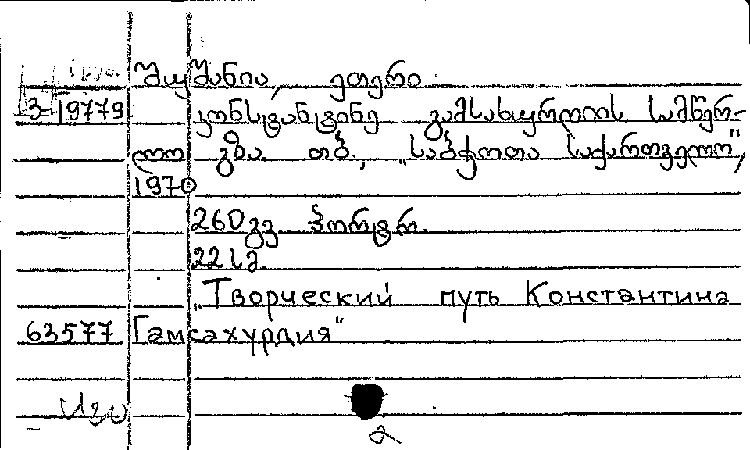 შუშანია, ეთერი.
3-19779 კონსტანტინე გამსახურდიას სამწერ-
ლო გზა. თბ., „საბჭოთა საქართველო",
1970
260გვ. პორტრ.
22სმ.
„Творческий путь Константина
63577 Гамсахурдия"